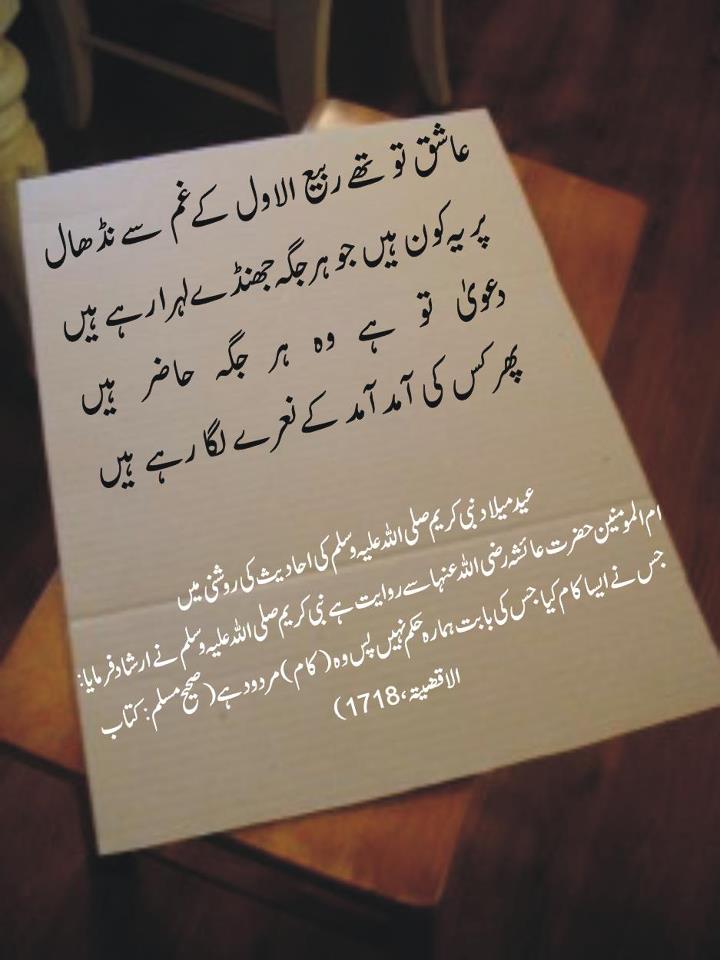 عاشق تو تھے ربیع الاول کے غم سے نڈھال
پر یہ کون ہیں جو ہر جگہ جھنڈے لہرا رہے ہیں
دعویٰ تو ہے وہ ہر جگہ حاضر ہیں
پھر کس کی آمد آمد کے نعرے لگا رہے ہیں
عید میلاد نبی کریم صلی اللہ علیہ وسلم کی احادیث کی روشنی میں
ام المومنین حضرت عائشہ رضی اللہ عنہا سے روایت ہے نبی کریم صلی اللہ علیہ وسلم نے ارشاد فرمایا:
جس نے ایسا کام کیا جس کی بابت ہمارہ حکم نہیں پس وہ (کام) مردود ہے (صحیح مسلم: کتاب
الاقضیتہ، 1718)